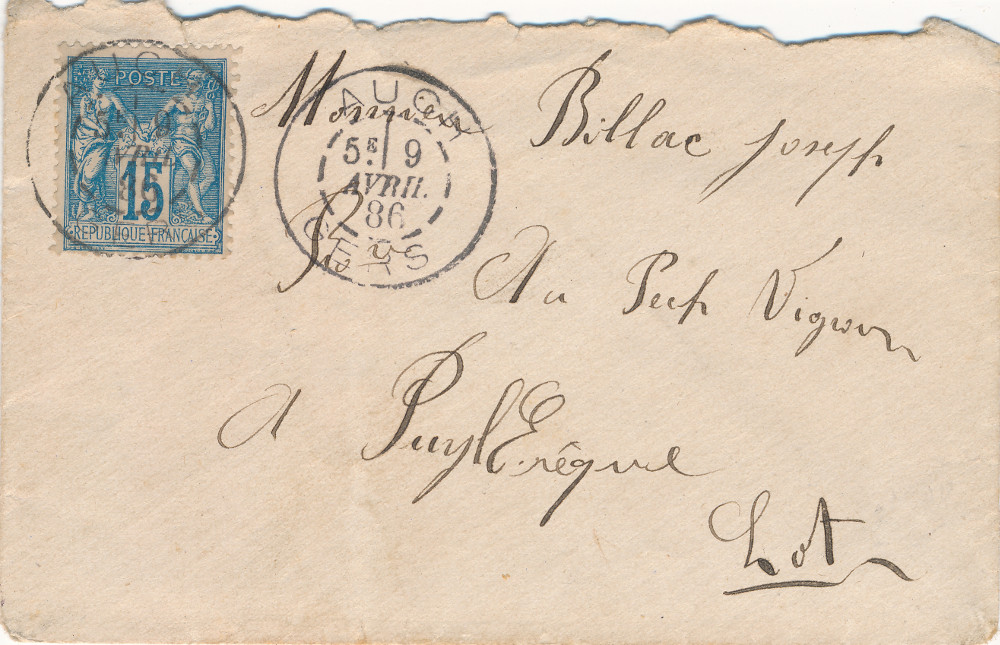 POSTE
15
REPUBLIQUE FRANÇAISE
AUCH
5E 9
AVRIL
86
GERS
Monsieur Billac Joseph
Au Pech Vignou
A Puyl'Evêque
Lot